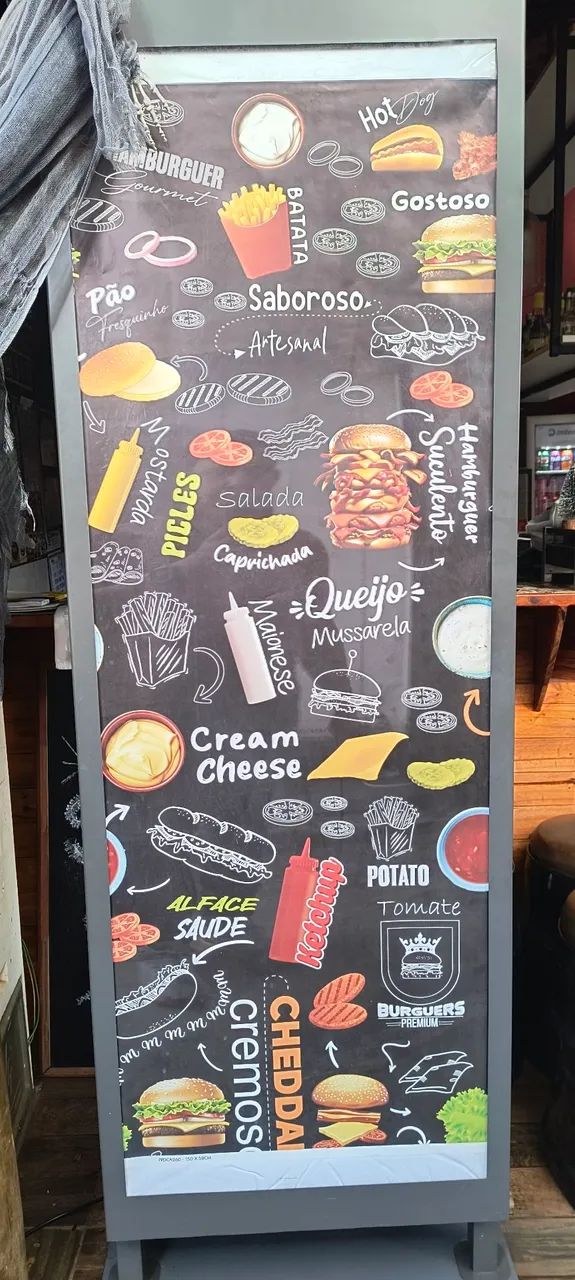 Hot Dog
HAMBURGUER
Gourmet
BATATA
Gostoso
Pão
Fresquinho
Saboroso
Artesanal
Mostarda
PICLES
Salada
Caprichada
Hamburguer
Suculento
Queijo
Mussarela
Maionese
Cream
Cheese
POTATO
Ketchup
ALFACE
SAUDE
Tomate
BURGUERS
PREMIUM
cremoso
CHEDDAR